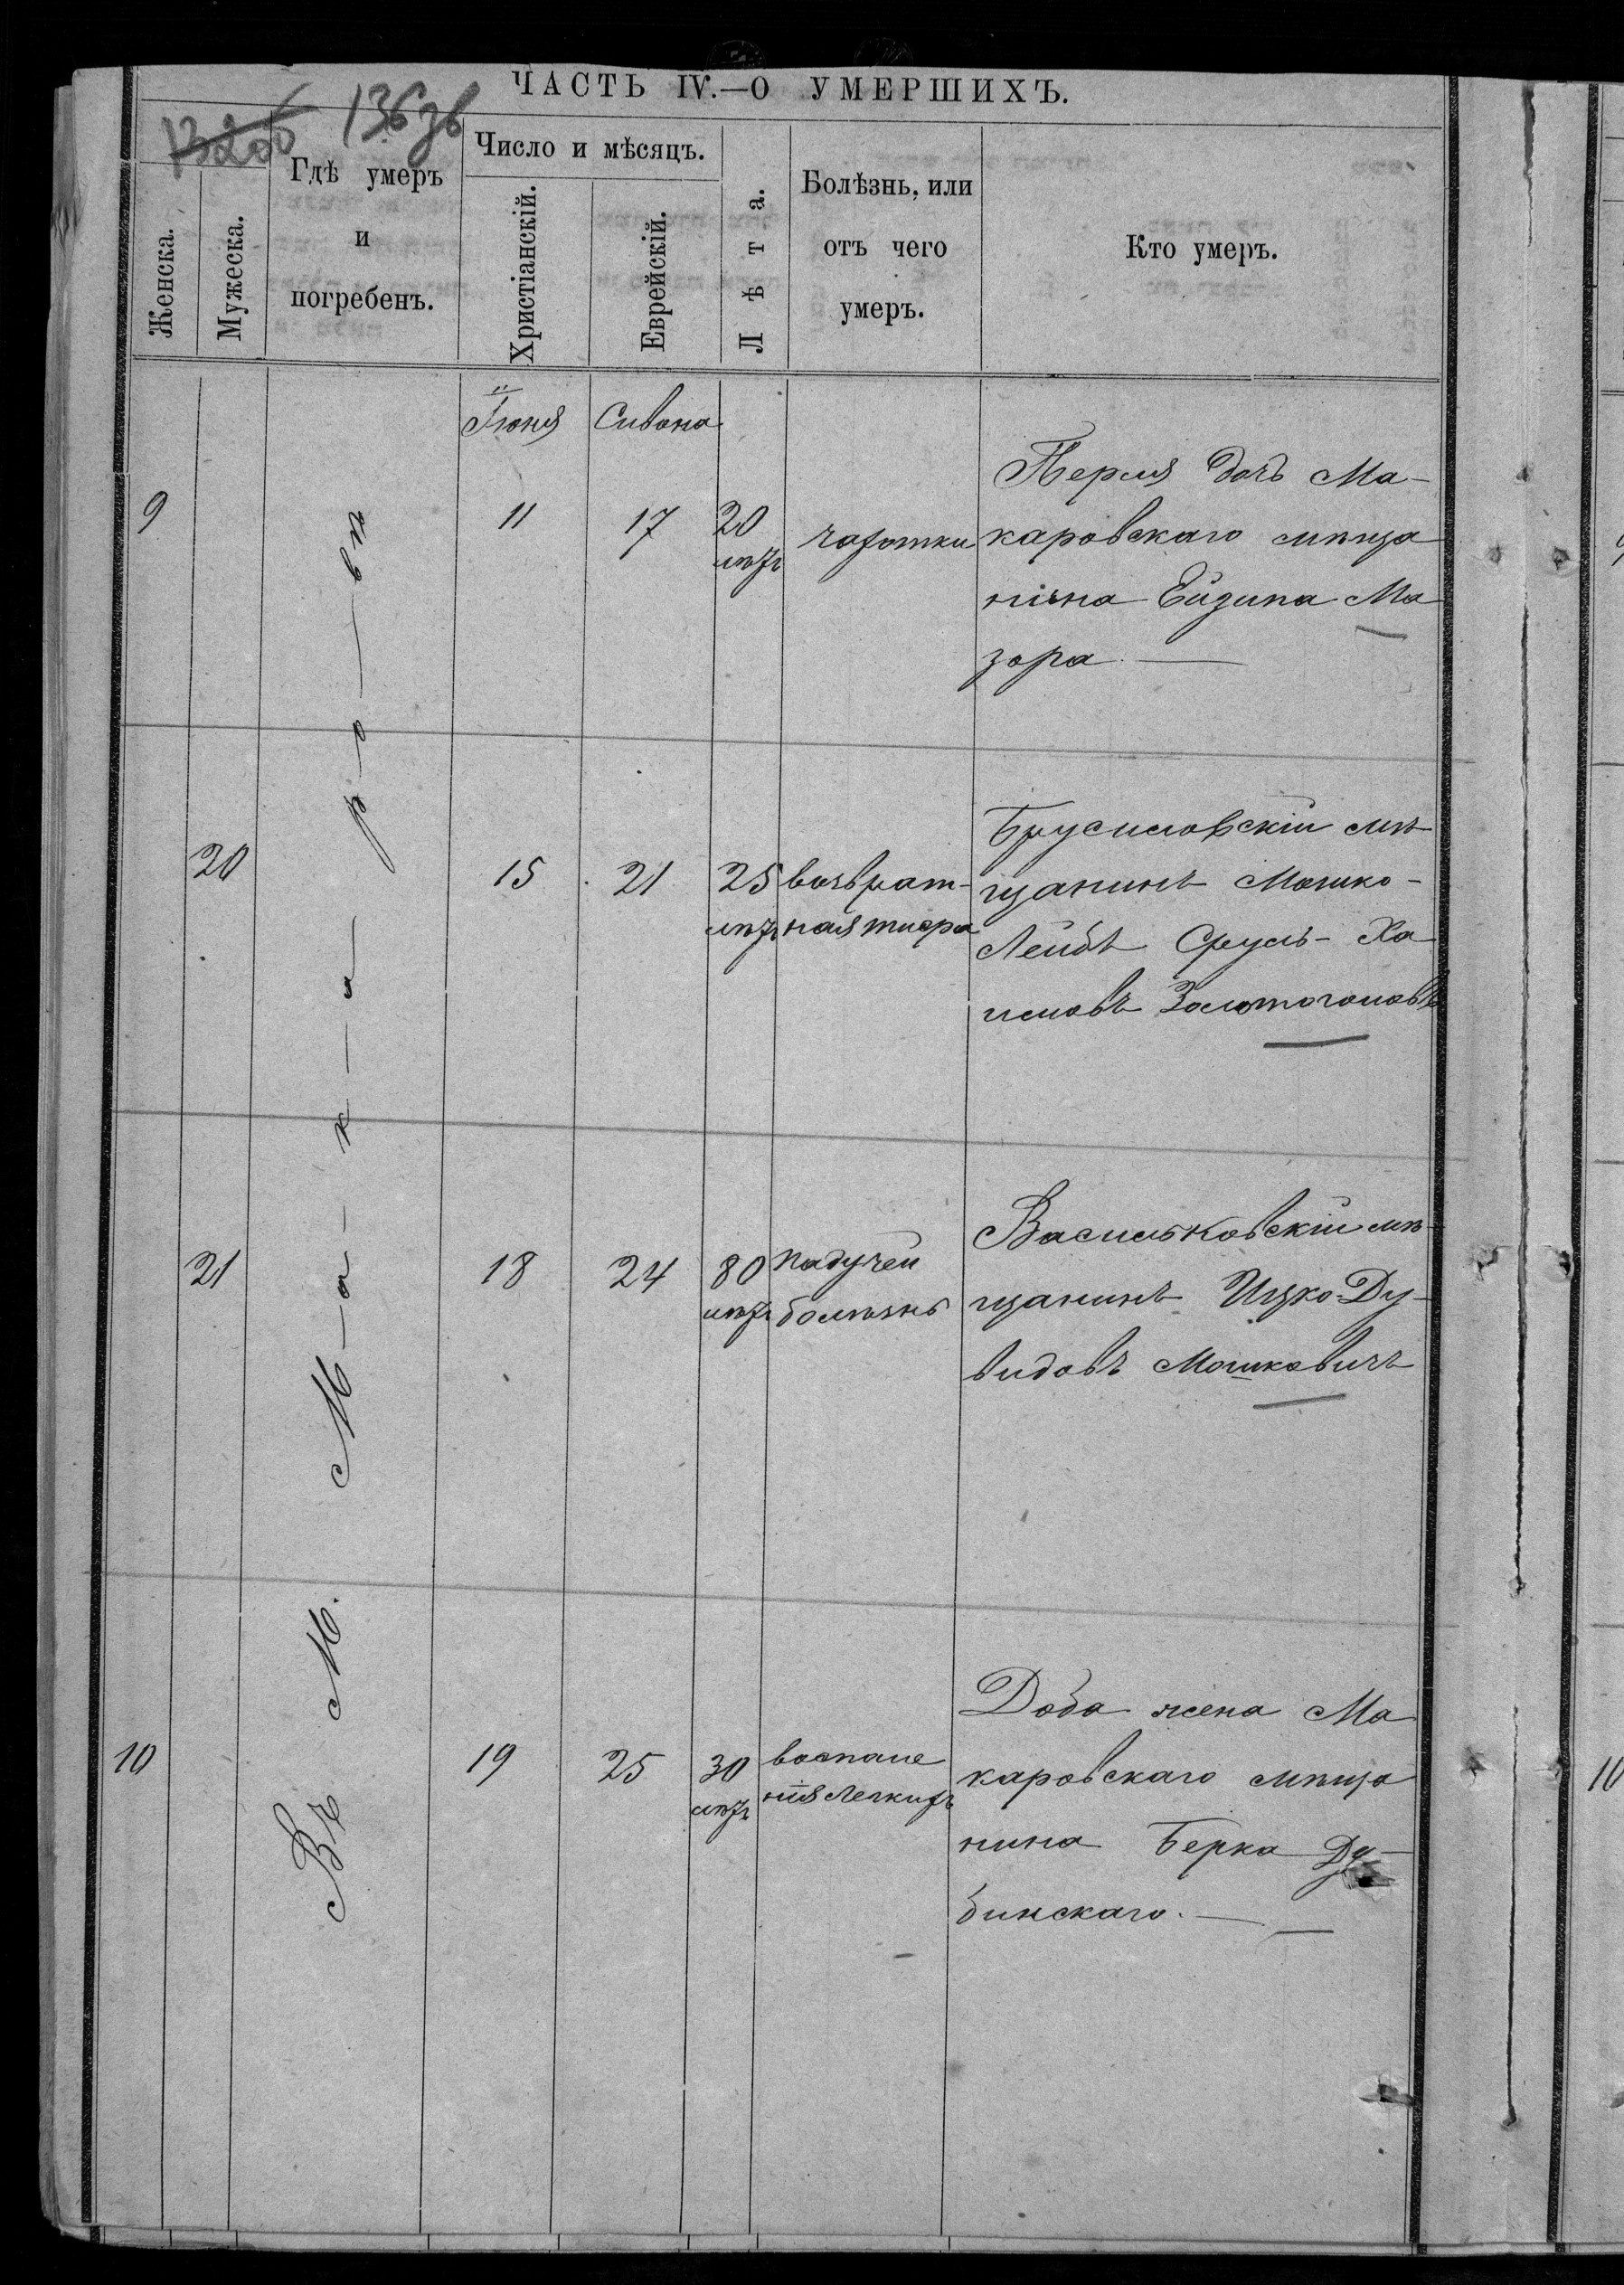 ЧАСТЬ IV.—О УМЕРШИХЪ.
136 зв
Женска.
Мужеска.
Гдѣ умеръ
и
погребенъ.
Число и мѣсяцъ.
Христіанскій.
Еврейскій.
Лѣта.
Болѣзнь, или
отъ чего
умеръ.
Кто умеръ.
Въ М. М-а-к-а-ро-вѣ
Іюня Сивана
9
11
17
20
лѣтъ
чахотки
Перля дочь Ма-
каровскаго мѣща
нина Ейзика Ма
зора.
20
15
21
25
лѣтъ
возврат-
ная тифа
Брусиловскій мѣ-
щанинъ Мошко-
Лейбъ Сруль-Ха
имовъ
21
18
24
80
лѣтъ
падучей
болѣзнь
Васильковскій мѣ-
щанинъ Ицко-Ду-
видовъ Мошковичъ
10
19
25
30
лѣтъ
воспале
нія легкихъ
Доба жена Ма
каровскаго мѣща
нина Берка Ду-
бинскаго.
10